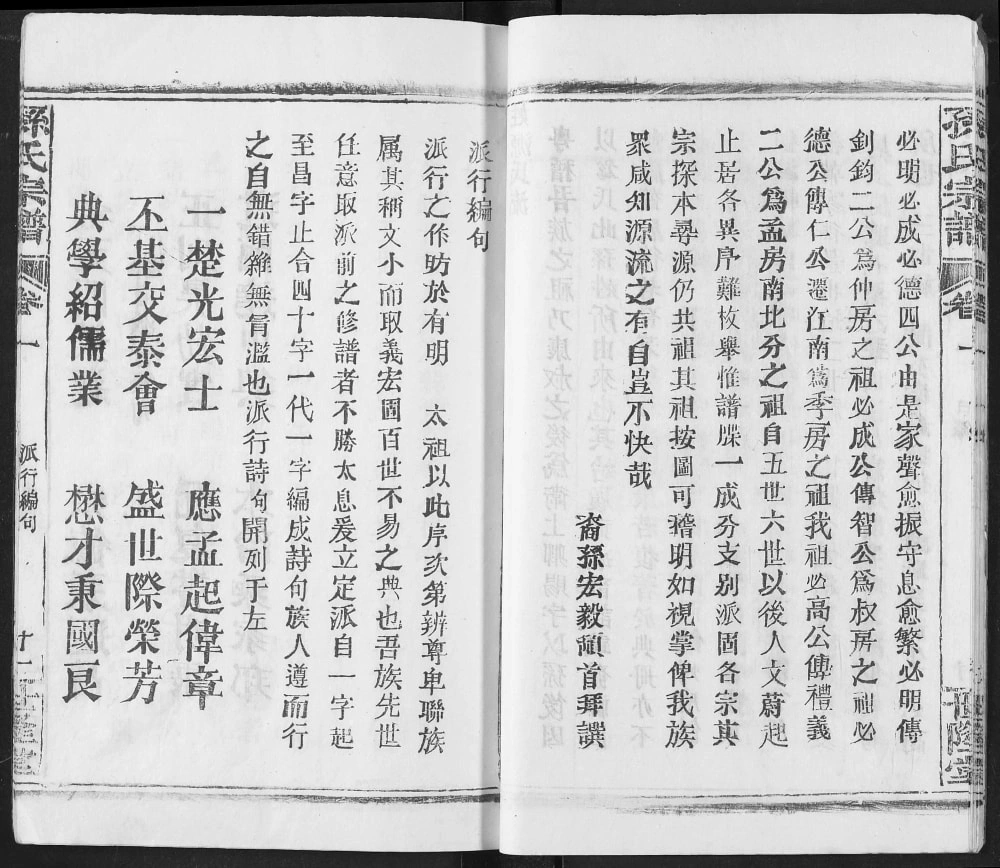 孫氏宗譜 卷一
必明必成必德四公由是家聲愈振守息愈繁必明傳
釗鈞二公爲仲房之祖必成公傳智公爲叔房之祖必
德公傳仁公遷江南爲季房之祖我祖必高公傳禮義
二公爲孟房南北分之祖自五世六世以後人文蔚起
止居各異序難枚舉惟譜牒一成分支别派固各宗其
宗探本尋源仍共祖其祖按圖可稽明如視掌俾我族
眾咸知源流之有自豈不快哉
裔孫宏毅頓首拜譔
派行編句
派行之作昉於有明 太祖以此序次第辨尊卑聯族
属其稱文小而取義宏固百世不易之典也吾族先世
任意取派前之修譜者不勝太息爰立定派自一字起
至昌字止合四十字一代一字編成詩句族人遵而行
之自無錯雜無冒濫也派行詩句開列于左
一楚光宏士 應孟起偉章
丕基交泰會 盛世際榮芳
典學紹儒業 懋才秉國良
孫氏宗譜 卷一 派行編句 十一